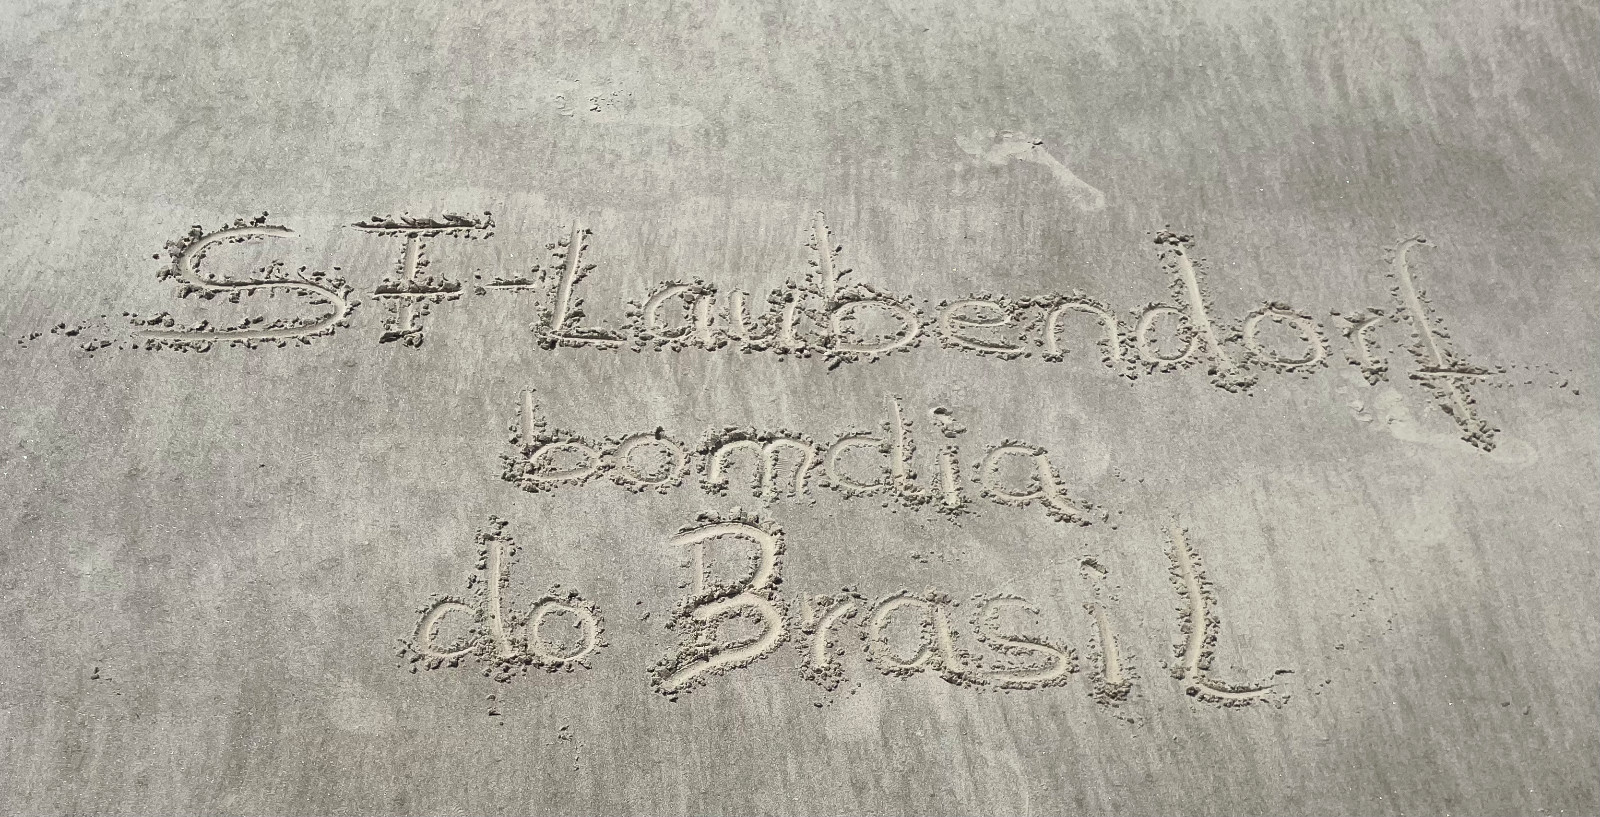 ST-Laubendorf
bomdia
do BrasiL